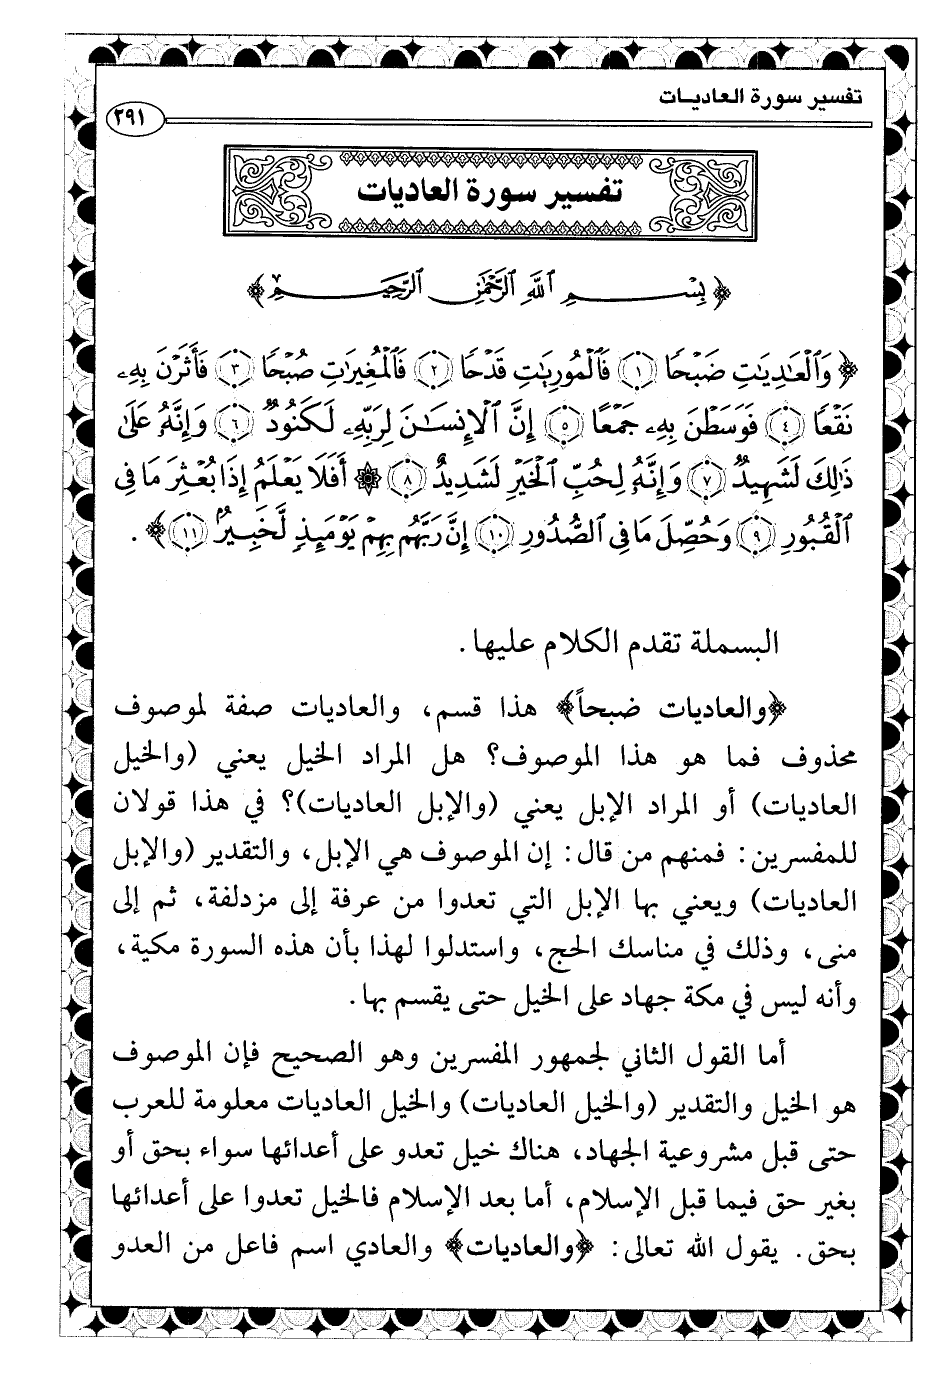 تفسير سورة العاديات
٢٩١
تفسير سورة العاديات
﴿بِسْمِ ٱللَّهِ ٱلرَّحْمَٰنِ ٱلرَّحِيمِ﴾
﴿وَٱلْعَٰدِيَٰتِ ضَبْحًا ١ فَٱلْمُورِيَٰتِ قَدْحًا ٢ فَٱلْمُغِيرَٰتِ صُبْحًا ٣ فَأَثَرْنَ بِهِۦ
نَقْعًا ٤ فَوَسَطْنَ بِهِۦ جَمْعًا ٥ إِنَّ ٱلْإِنسَٰنَ لِرَبِّهِۦ لَكَنُودٌ ٦ وَإِنَّهُۥ عَلَىٰ
ذَٰلِكَ لَشَهِيدٌ ٧ وَإِنَّهُۥ لِحُبِّ ٱلْخَيْرِ لَشَدِيدٌ ٨ ۞ أَفَلَا يَعْلَمُ إِذَا بُعْثِرَ مَا فِى
ٱلْقُبُورِ ٩ وَحُصِّلَ مَا فِى ٱلصُّدُورِ ١٠ إِنَّ رَبَّهُم بِهِمْ يَوْمَئِذٍ لَّخَبِيرٌۢ ١١﴾.
البسملة تقدم الكلام عليها.
﴿والعاديات ضبحاً﴾ هذا قسم، والعاديات صفة لموصوف
محذوف فما هو هذا الموصوف؟ هل المراد الخيل يعني (والخيل
العاديات) أو المراد الإبل يعني (والإبل العاديات)؟ في هذا قولان
للمفسرين: فمنهم من قال: إن الموصوف هي الإبل، والتقدير (والإبل
العاديات) ويعني بها الإبل التي تعدوا من عرفة إلى مزدلفة، ثم إلى
منى، وذلك في مناسك الحج، واستدلوا لهذا بأن هذه السورة مكية،
وأنه ليس في مكة جهاد على الخيل حتى يقسم بها.
أما القول الثاني لجمهور المفسرين وهو الصحيح فإن الموصوف
هو الخيل والتقدير (والخيل العاديات) والخيل العاديات معلومة للعرب
حتى قبل مشروعية الجهاد، هناك خيل تعدو على أعدائها سواء بحق أو
بغير حق فيما قبل الإسلام، أما بعد الإسلام فالخيل تعدوا على أعدائها
بحق. يقول الله تعالى: ﴿والعاديات﴾ والعادي اسم فاعل من العدو